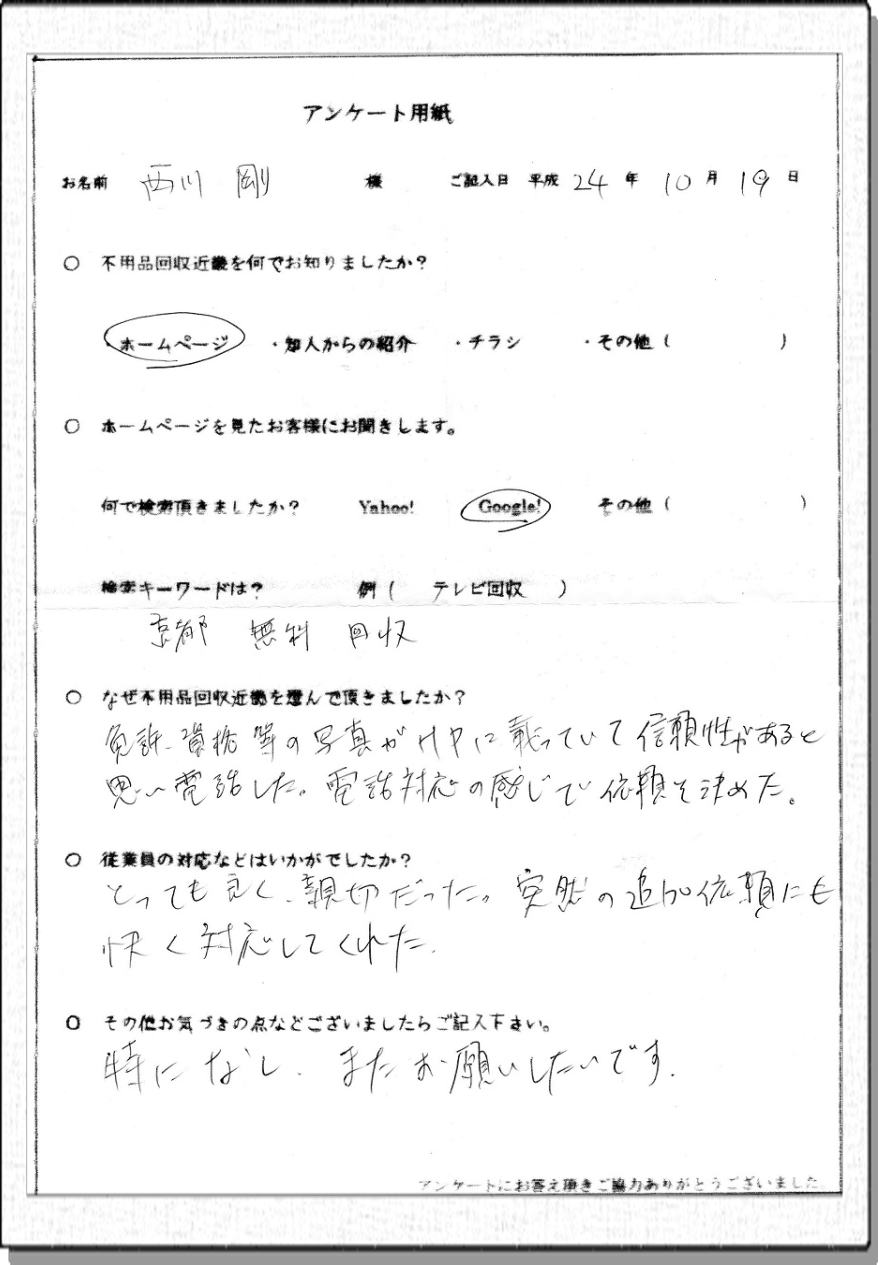 アンケート用紙
お名前 西川 剛 様 ご記入日 平成 24 年 10 月 19 日
○ 不用品回収近畿を何でお知りましたか?
・ホームページ ・知人からの紹介 ・チラシ ・その他 ( )
○ ホームページを見たお客様にお聞きします。
何で検索頂きましたか? Yahoo! Google! その他 ( )
検索キーワードは? 例 ( テレビ回収 )
京都 無料 回収
○ なぜ不用品回収近畿を選んで頂きましたか?
免許、資格等の写真がHPに載っていて信頼性があると
思い電話した。電話対応の感じで依頼を決めた。
○ 従業員の対応などはいかがでしたか?
とっても良く、親切だった。突然の追加依頼にも
快く対応してくれた.
○ その他お気づきの点などございましたらご記入下さい。
特になし. またお願いしたいです.
アンケートにお答え頂きご協力ありがとうございました。